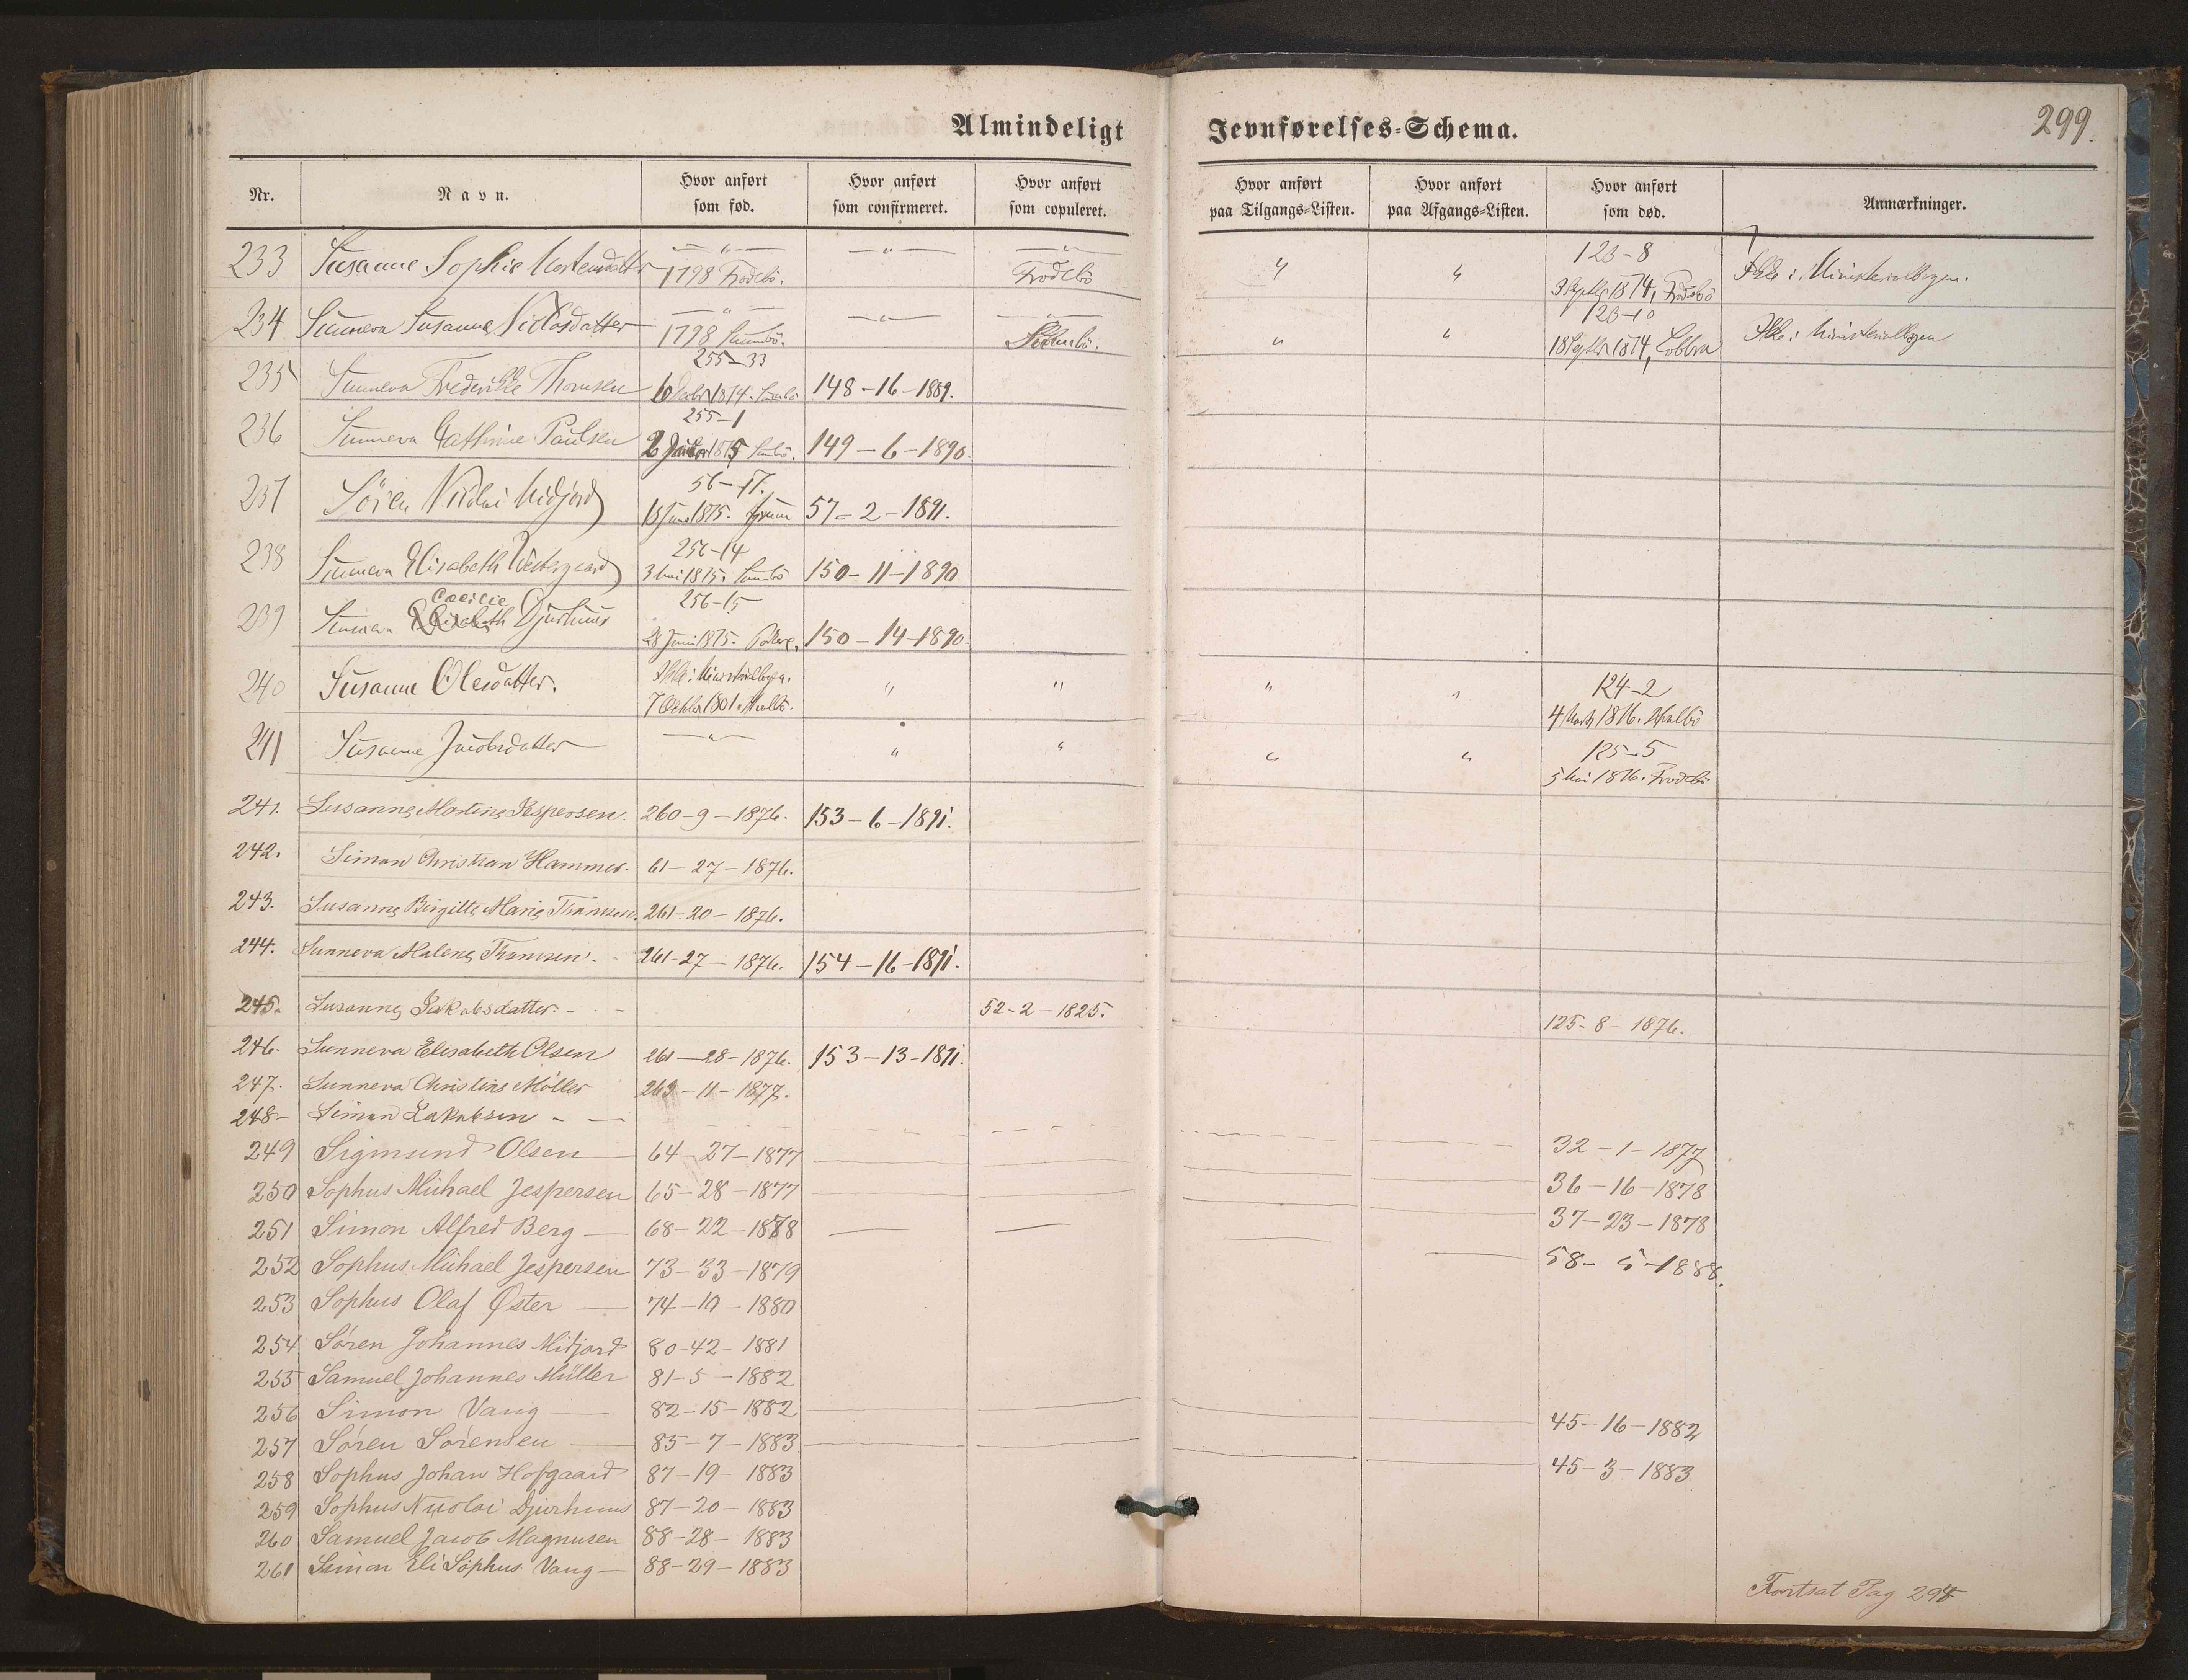 Almindeligt Jevnførelses-Schema.
299.
Nr. Navn. Hvor anført som fød. Hvor anført som confirmeret. Hvor anført som copuleret. Hvor anført paa Tilgangs-Listen. Hvor anført paa Afgangs-Listen. Hvor anført som død. Anmærkninger.
— " — — " — — " — 123-8
233 Susanne Sophie Mortensdatter 1798 Frodebö. Frodebö " " 3 Septbr 1874, Frodebö Ikke i Ministerialbogen.
— " — — " — — " — 123-10
234 Sunneva Susanne Niclasdatter 1798 Sumbö. Sumbö. " " 18 Septbr 1874, Ikke i Ministerialbogen
255-33
235 Sunneva Frederikke Thomsen 1874. Sumbö 148-16-1889.
255-1
236 Sunneva Cathrine Paulsen 2 1875 Sumbö. 149-6-1890.
56-17.
237 Sören Nikolai Midjord 1875. 57-2-1891.
256-14
238 Sunneva Elisabeth Vestergaard 3 Mai 1875. Sumbö 150-11-1890
Cæcilie 256-15
239 Sunneva Elisabeth Djurhuus 28 Juni 1875. 150-14-1890.
Ikke i Ministerialbogen. 124-2
240 Susanne Olesdatter. 7 Octbr 1801. Hvalbö. " " " " 4 Marts 1876. Hvalbö
— " — 125-5
241 Susanne Jacobsdatter " " " " 5 Mai 1876. Frodebö
241. Susanne Martine Jespersen. 260-9-1876. 153-6-1891.
242. Simon Christian Hammer. 61-27-1876.
243. Susanne Birgitte Marie Thomsen. 261-20-1876.
244. Sunneva Malene Thomsen. 261-27-1876. 154-16-1891.
245. Susanne Jakobsdatter. 52-2-1825. 125-8-1876.
246. Sunneva Elisabeth Olsen 261-28-1876. 153-13-1891.
247. Sunneva Christine Möller 263-11-1877.
248- Simon Jakobsen - — 32-1-1877
249 Sigmund Olsen 64-27-1877 36-16-1878
250 Sophus Michael Jespersen 65-28-1877 37-23-1878
251 Simon Alfred Berg 68-22-1878 58-5-1888.
252 Sophus Michael Jespersen 73-33-1879
253 Sophus Olaf Øster 74-10-1880
254 Sören Johannes Midjord 80-42-1881
255 Samuel Johannes Müller 81-5-1882
256 Simon Vang 82-15-1882 45-16-1882
257 Sören Sörensen 85-7-1883 45-3-1883
258 Sophus Johan Hofgaard 87-19-1883
259 Sophus Nicolai Djurhuus 87-20-1883
260 Samuel Jacob Magnusen 88-28-1883
261 Simon Eli Sophus Vang 88-29-1883
Fortsat Pag 294